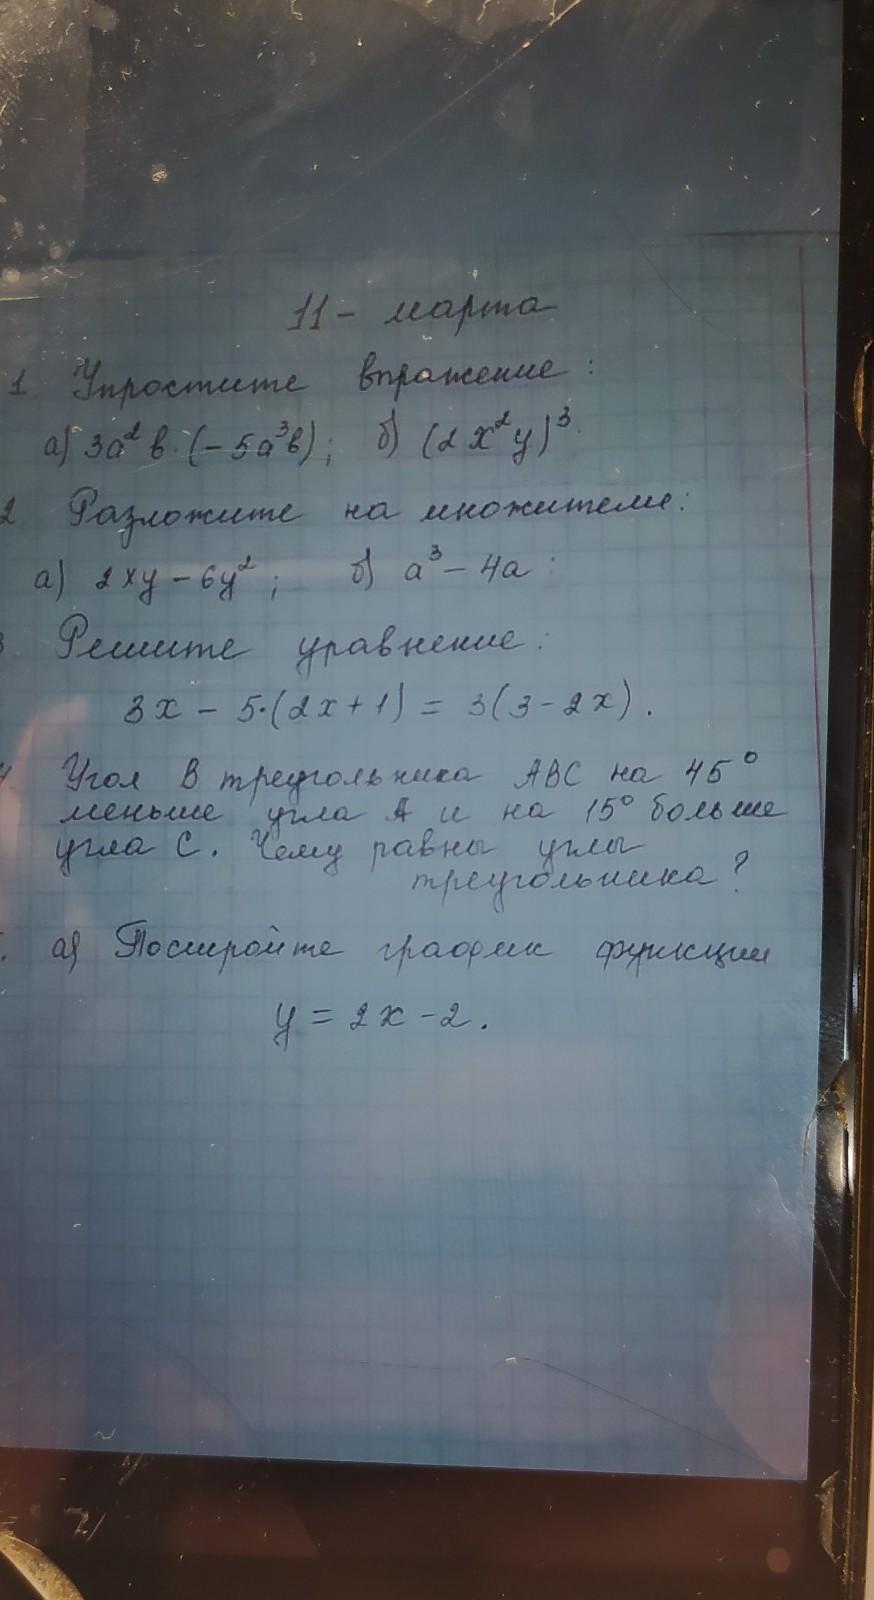 11 - марта
1. Упростите выражение:
а) 3a²b·(-5a³b); б) (2x²y)³.
2 Разложите на множители:
а) 2xy - 6y²; б) a³ - 4a:
3 Решите уравнение:
3x - 5·(2x+1) = 3(3-2x).
4 Угол B треугольника ABC на 45°
меньше угла A и на 15° больше
угла C. Чему равны углы
треугольника?
. а) Постройте график функции
y = 2x - 2.